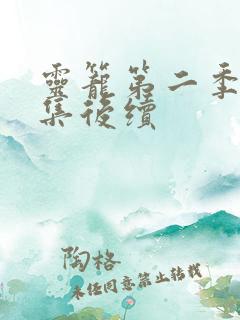 靈籠第二季
集後續
陶格
未经同意禁止转载